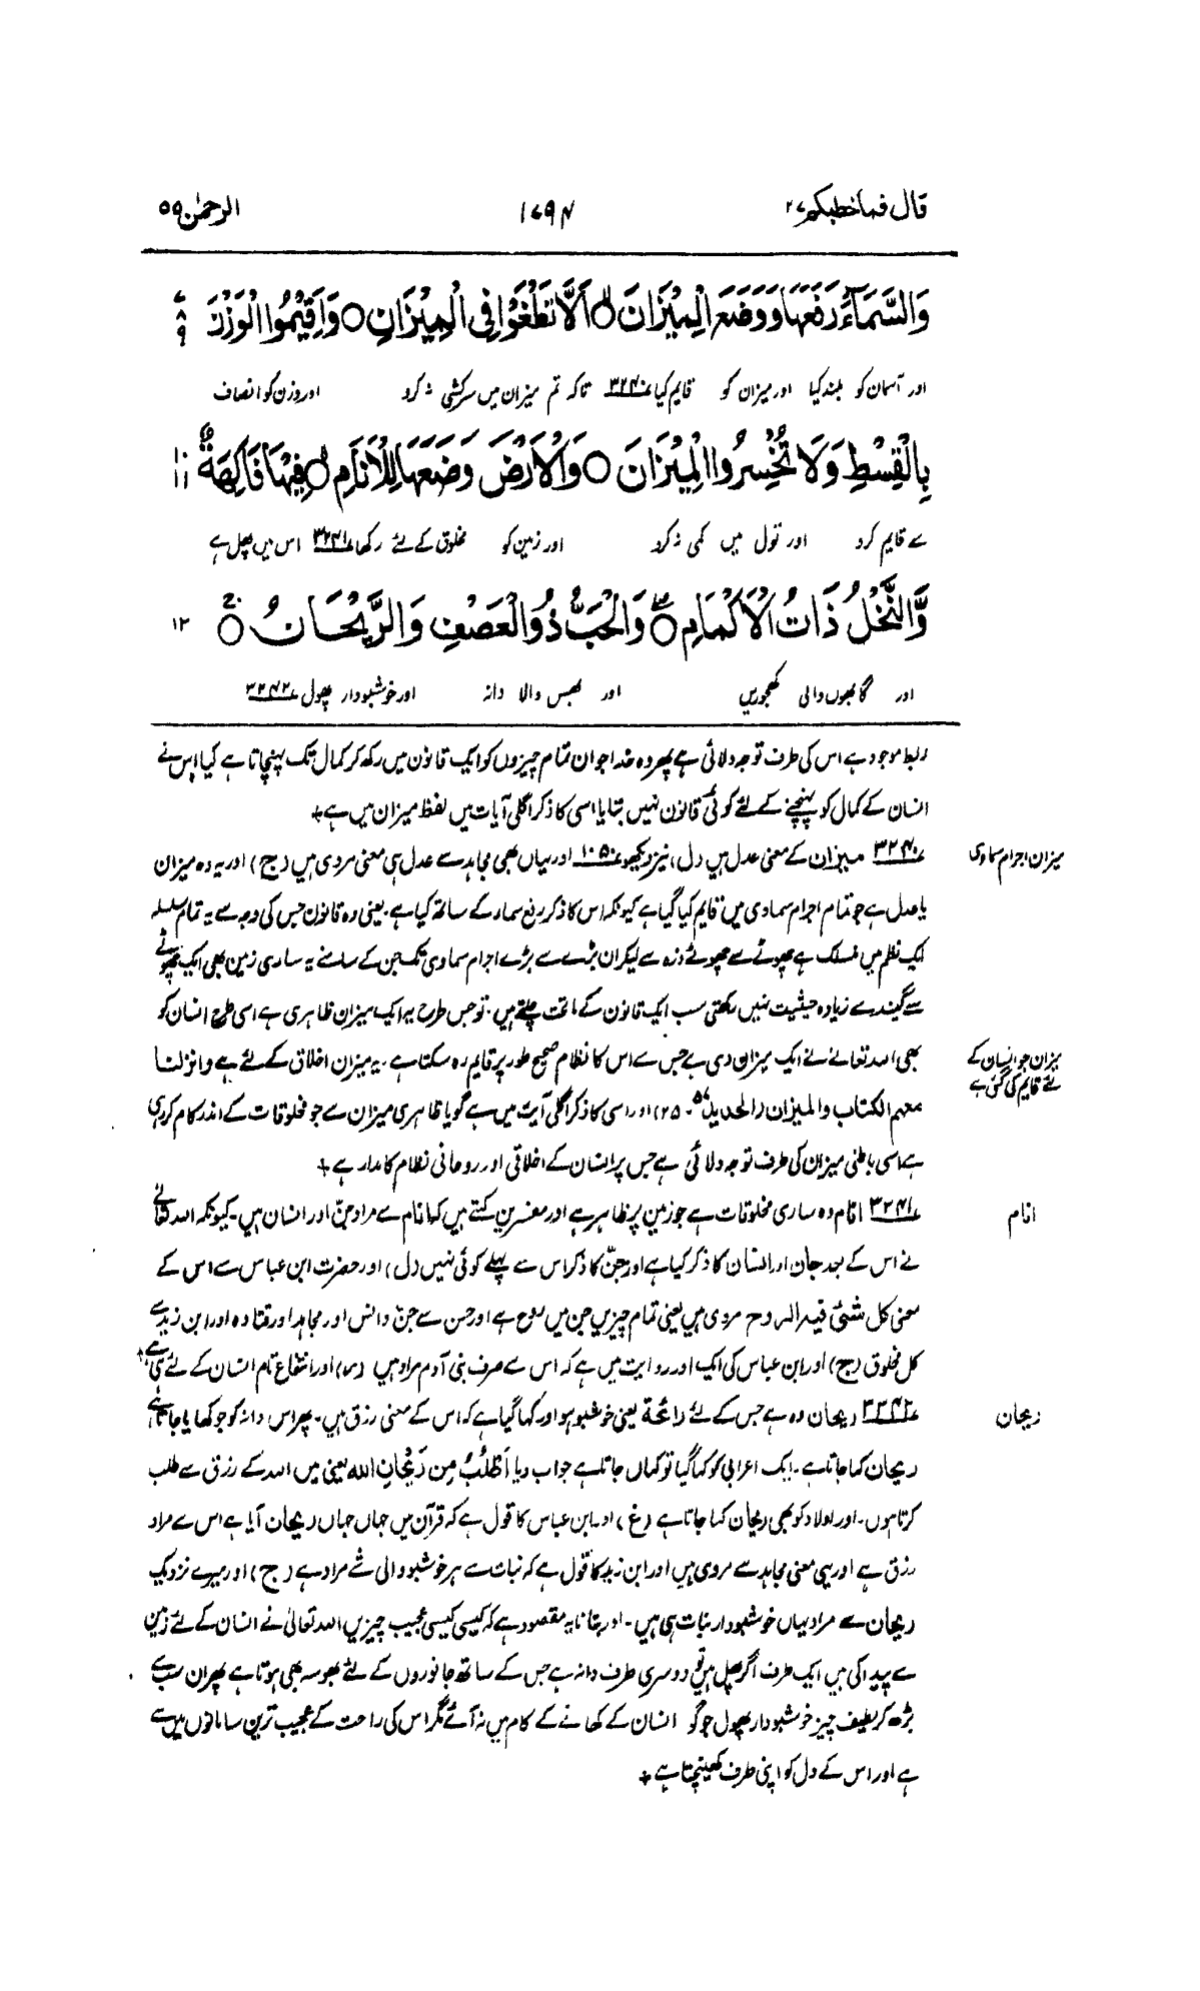 قال فما خطبکم ۲۷
۱۷۹۴
الرحمٰن ۵۵
وَالسَّمَآءَ رَفَعَهَا وَوَضَعَ الْمِيْزَانَ ۝ اَلَّا تَطْغَوْا فِى الْمِيْزَانِ ۝ وَاَقِيْمُوا الْوَزْنَ ۷ ۸ ۹
اور آسمان کو بلند کیا اور میزان کو قایم کیا ۳۲۴۰ تاکہ تم میزان میں سرکشی نہ کرو اور وزن کو انصاف
بِالْقِسْطِ وَلَا تُخْسِرُوا الْمِيْزَانَ ۝ وَالْاَرْضَ وَضَعَهَا لِلْاَنَامِ ۝ فِيْهَا فَاكِهَةٌ ۱۰ ۱۱
سے قایم کرو اور تول میں کمی نہ کرو اور زمین کو مخلوق کے لئے رکھا ۳۲۴۱ اس میں پھل ہے
وَّالنَّخْلُ ذَاتُ الْاَكْمَامِ ۝ وَالْحَبُّ ذُو الْعَصْفِ وَالرَّيْحَانُ ۝ ۱۲
اور گابھوں والی کھجوریں اور بھس والا دانہ اور خوشبودار پھول ۳۲۴۲
ربط موجود ہے اس کی طرف توجہ دلائی ہے پھر وہ خدا جو ان تمام چیزوں کو ایک قانون میں رکھ کر کمال تک پہنچاتا ہے کیا اس نے
انسان کے کمال کو پہنچنے کے لئے کوئی قانون نہیں بتایا اسی کا ذکر اگلی آیات میں لفظ میزان میں ہے +
میزان اجرام سماوی
۳۲۴۰ میزان کے معنی عدل ہیں (ل) نیز دیکھو ۱۰۵۰ اور یہاں بھی مجاہد سے عدل ہی معنی مروی ہیں (ج) اور یہ وہ میزان
یا عدل ہے جو تمام اجرام سماوی میں قایم کیا گیا ہے کیونکہ اس کا ذکر رفع سماء کے ساتھ کیا ہے۔ یعنی وہ قانون جس کی وجہ سے یہ تمام سلسلہ
ایک نظم میں منسلک ہے چھوٹے سے چھوٹے ذرہ سے لیکر ان بڑے سے بڑے اجرام سماوی تک جن کے سامنے یہ ساری زمین بھی ایک چھوٹے
سے گیند سے زیادہ حیثیت نہیں رکھتی سب ایک قانون کے ماتحت چلتے ہیں۔ تو جس طرح یہ ایک میزان ظاہری ہے اسی طرح انسان کو
میزان جو انسان کے لئے قایم کی گئی ہے
بھی اللہ تعالےٰ نے ایک میزان دی ہے جس سے اس کا نظام صحیح طور پر قایم رہ سکتا ہے۔ یہ میزان اخلاق کے لئے ہے وانزلنا
معہم الکتاب والمیزان (الحدید ۵۷-۲۵) اور اسی کا ذکر اگلی آیت میں ہے گویا ظاہری میزان سے جو مخلوقات کے اندر کام کر رہی
ہے اسی باطنی میزان کی طرف توجہ دلائی ہے جس پر انسان کے اخلاقی اور روحانی نظام کا مدار ہے +
انام
۳۲۴۱ انام وہ ساری مخلوقات ہے جو زمین پر ظاہر ہے اور مفسرین کہتے ہیں کہ انام سے مراد جن اور انسان ہیں۔ کیونکہ اللہ تعالےٰ
نے اس کے بعد جان اور انسان کا ذکر کیا ہے اور جن کا ذکر اس سے پہلے کوئی نہیں (ل) اور حضرت ابن عباس سے اس کے
معنی کل شئ فیہ الروح مروی ہیں یعنی تمام چیزیں جن میں روح ہے اور حسن سے جن وانس اور مجاہد اور قتادہ اور ابن زید سے
کل مخلوق (ج) اور ابن عباس کی ایک اور روایت میں ہے کہ اس سے صرف بنی آدم مراد ہیں (ر) اور انتفاع تام انسان کے لئے ہی ہے +
ریحان
۳۲۴۲ ریحان وہ ہے جس کے لئے رائحة یعنی خوشبو ہو اور کہا گیا ہے کہ اس کے معنی رزق ہیں۔ پھر اس دانہ کو جو کھایا جاتا ہے
ریحان کہا جاتا ہے۔ ایک اعرابی کو کہا گیا تو کہاں جاتا ہے جواب دیا اَطْلُبُ مِن رَیْحَانِ اللہ یعنی میں اللہ کے رزق سے طلب
کرتا ہوں۔ اور اولاد کو بھی ریحان کہا جاتا ہے (غ) اور ابن عباس کا قول ہے کہ قرآن میں جہاں جہاں ریحان آیا ہے اس سے مراد
رزق ہے اور یہی معنی مجاہد سے مروی ہیں اور ابن زید کا قول ہے کہ نبات سے ہر خوشبو والی شے مراد ہے (ج) اور میرے نزدیک
ریحان سے مراد یہاں خوشبودار نبات ہی ہیں۔ اور بتانا یہ مقصود ہے کہ کیسی کیسی عجیب چیزیں اللہ تعالیٰ نے انسان کے لئے زمین
سے پیدا کی ہیں ایک طرف اگر پھل ہیں تو دوسری طرف دانہ ہے جس کے ساتھ جانوروں کے لئے بھوسہ بھی ہوتا ہے پھر ان سب سے
بڑھ کر لطیف چیز خوشبودار پھول جو گو انسان کے کھانے کے کام میں نہ آئے مگر اس کی راحت کے عجیب ترین سامانوں میں سے
ہے اور اس کے دل کو اپنی طرف کھینچتا ہے +